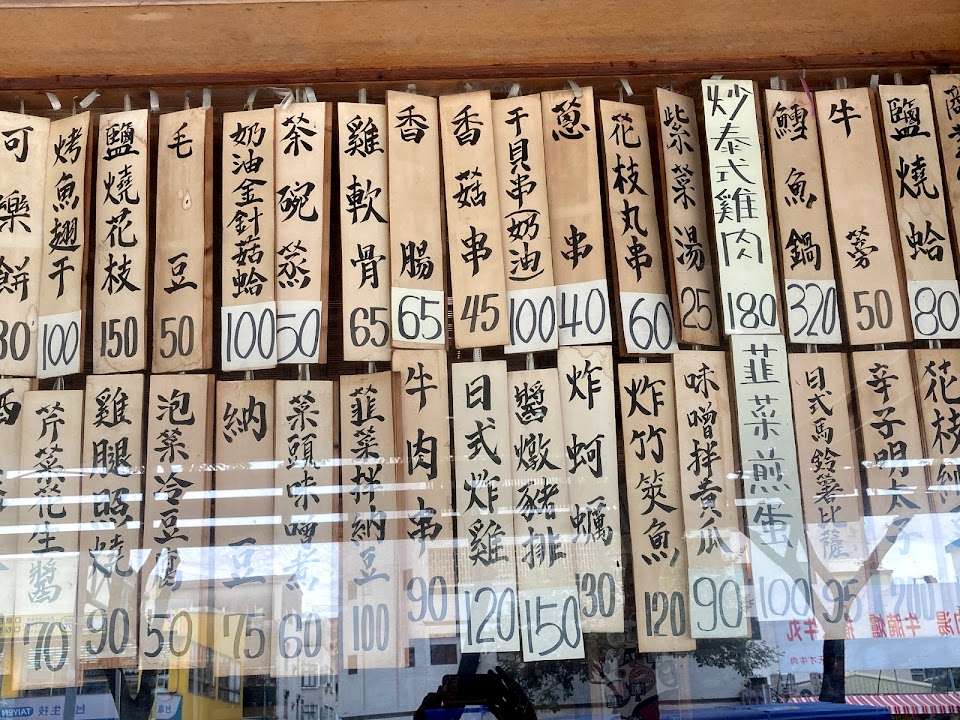 可樂餅
烤魚翅干
100
鹽燒花枝
150
毛豆
50
奶油金針菇蛤
100
茶碗蒸
50
雞軟骨
65
香腸
65
香菇串
45
干貝串(奶油)
100
蔥串
40
花枝丸串
60
紫菜湯
25
炒泰式雞肉
180
鱈魚鍋
320
牛蒡
50
鹽燒蛤
80
芹菜花生醬
70
雞腿照燒
90
泡菜冷豆腐
50
納豆
75
菜頭味噌煮
60
韮菜拌納豆
100
牛肉串
90
日式炸雞
120
醬燉豬排
150
炸蚵蠣
130
炸竹筴魚
120
味噌拌黃瓜
90
韮菜煎蛋
100
日式馬鈴薯比薩
95
辛子明太子
200
花枝納
台生技
TAIYEN